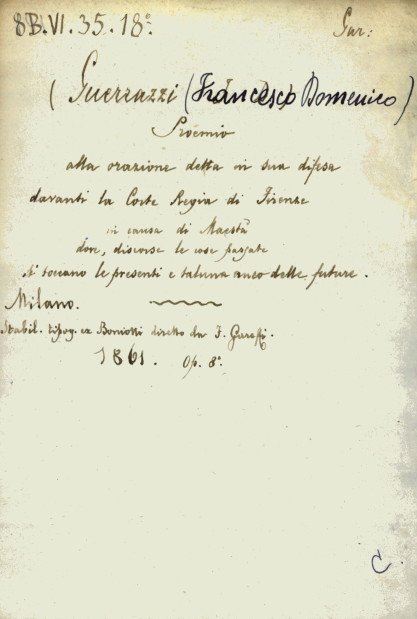 8B.VI.35.18°
Gar:
( Guerrazzi (Francesco Domenico)
Proemio
alla orazione detta in sua difesa
davanti la Corte Regia di Firenze
in causa di Maestà
dove, discorse le cose passate
si toccano le presenti e taluna anco delle future.
Milano.
Stabil. tipog. ex Boniotti diretto da F. Gareffi.
1861. Op. 8°.
C